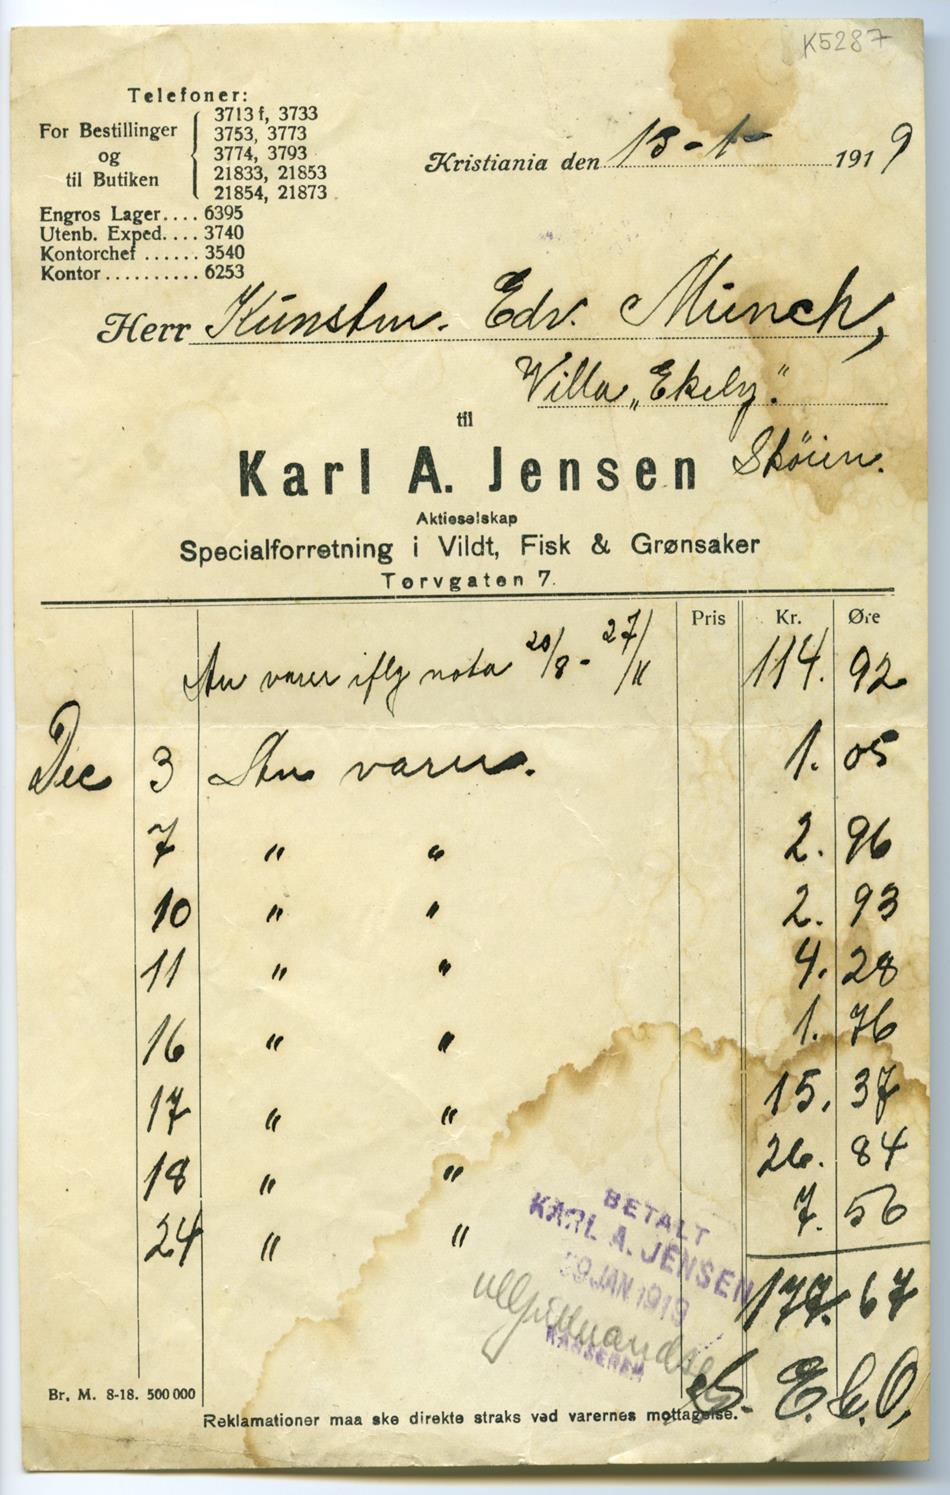 K5287
Telefoner:
For Bestillinger og til Butiken
3713 f, 3733
3753, 3773
3774, 3793
21833, 21853
21854, 21873
Engros Lager.... 6395
Utenb. Exped.... 3740
Kontorchef ...... 3540
Kontor.......... 6253
Kristiania den 13 - 1 - 1919
Herr Kunstm. Edv. Munch,
Villa „Ekely."
Skøien.
til
Karl A. Jensen
Aktieselskap
Specialforretning i Vildt, Fisk & Grønsaker
Torvgaten 7.
Pris Kr. Øre
An varer iflg nota 20/8 - 27/11 114. 92
Dec 3 An varer. 1. 05
7 " " 2. 96
10 " " 2. 93
11 " " 4. 28
16 " " 1. 76
17 " " 15. 37
18 " " 26. 84
24 " " 7. 56
177. 67
BETALT
KARL A. JENSEN
29 JAN 1919
KASSEREN
S. E. & O,
Br. M. 8-18. 500 000
Reklamationer maa ske direkte straks ved varernes mottagelse.